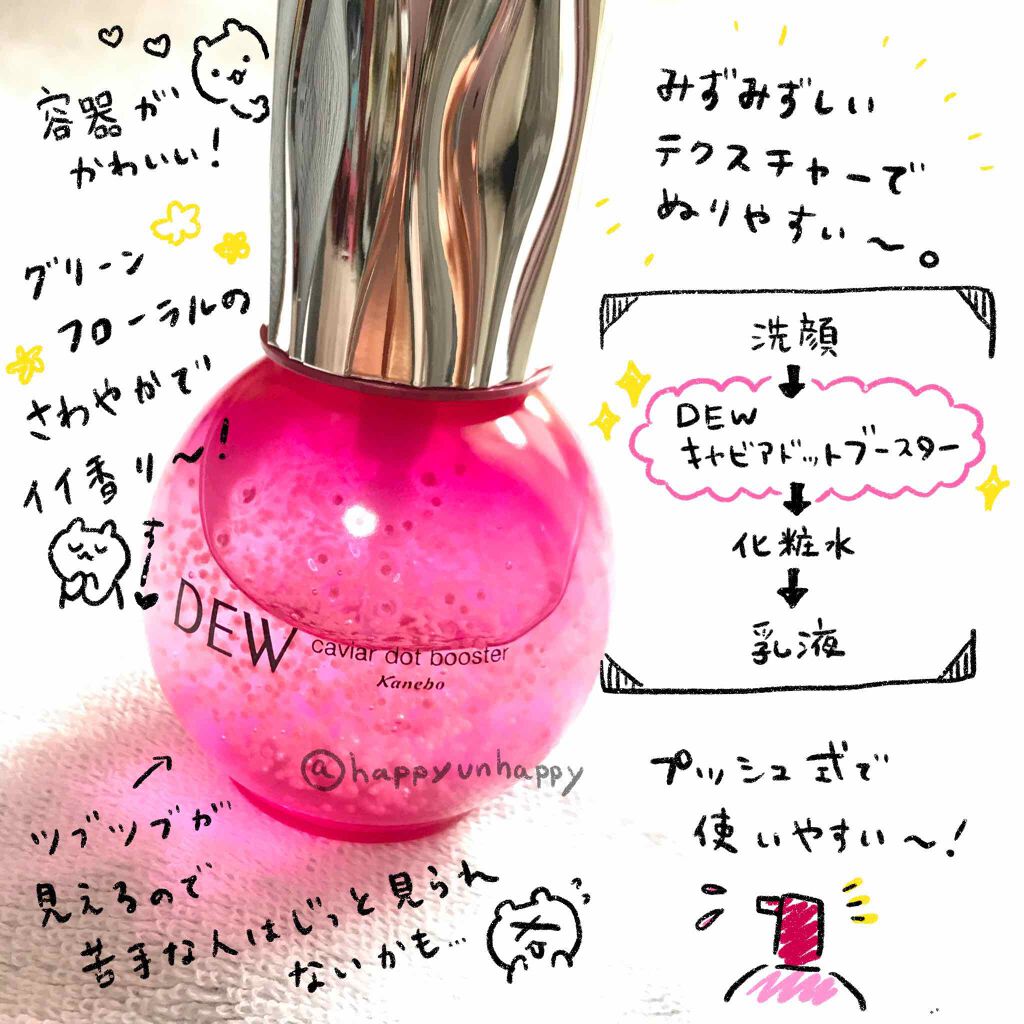 容器が
かわいい!
グリーン
フローラルの
さわやかで
イイ香り〜!
すー
みずみずしい
テクスチャーで
ぬりやすい〜。
洗顔
DEW
キャビアドットブースター
化粧水
乳液
DEW
caviar dot booster
Kanebo
@happyunhappy
ツブツブが
見えるので
苦手な人はじっと見られ
ないかも…
プッシュ式で
使いやすい〜!